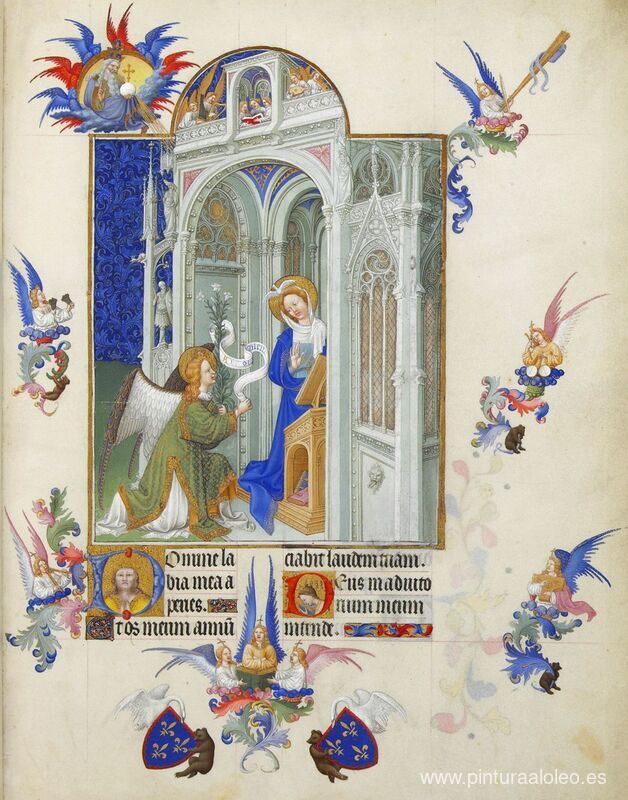 Domine la
bia mea a
peries.
Et os meum annun
ciabit laudem tuam.
Deus in adiuto
rium meum
intende.
www.pinturaaloleo.es